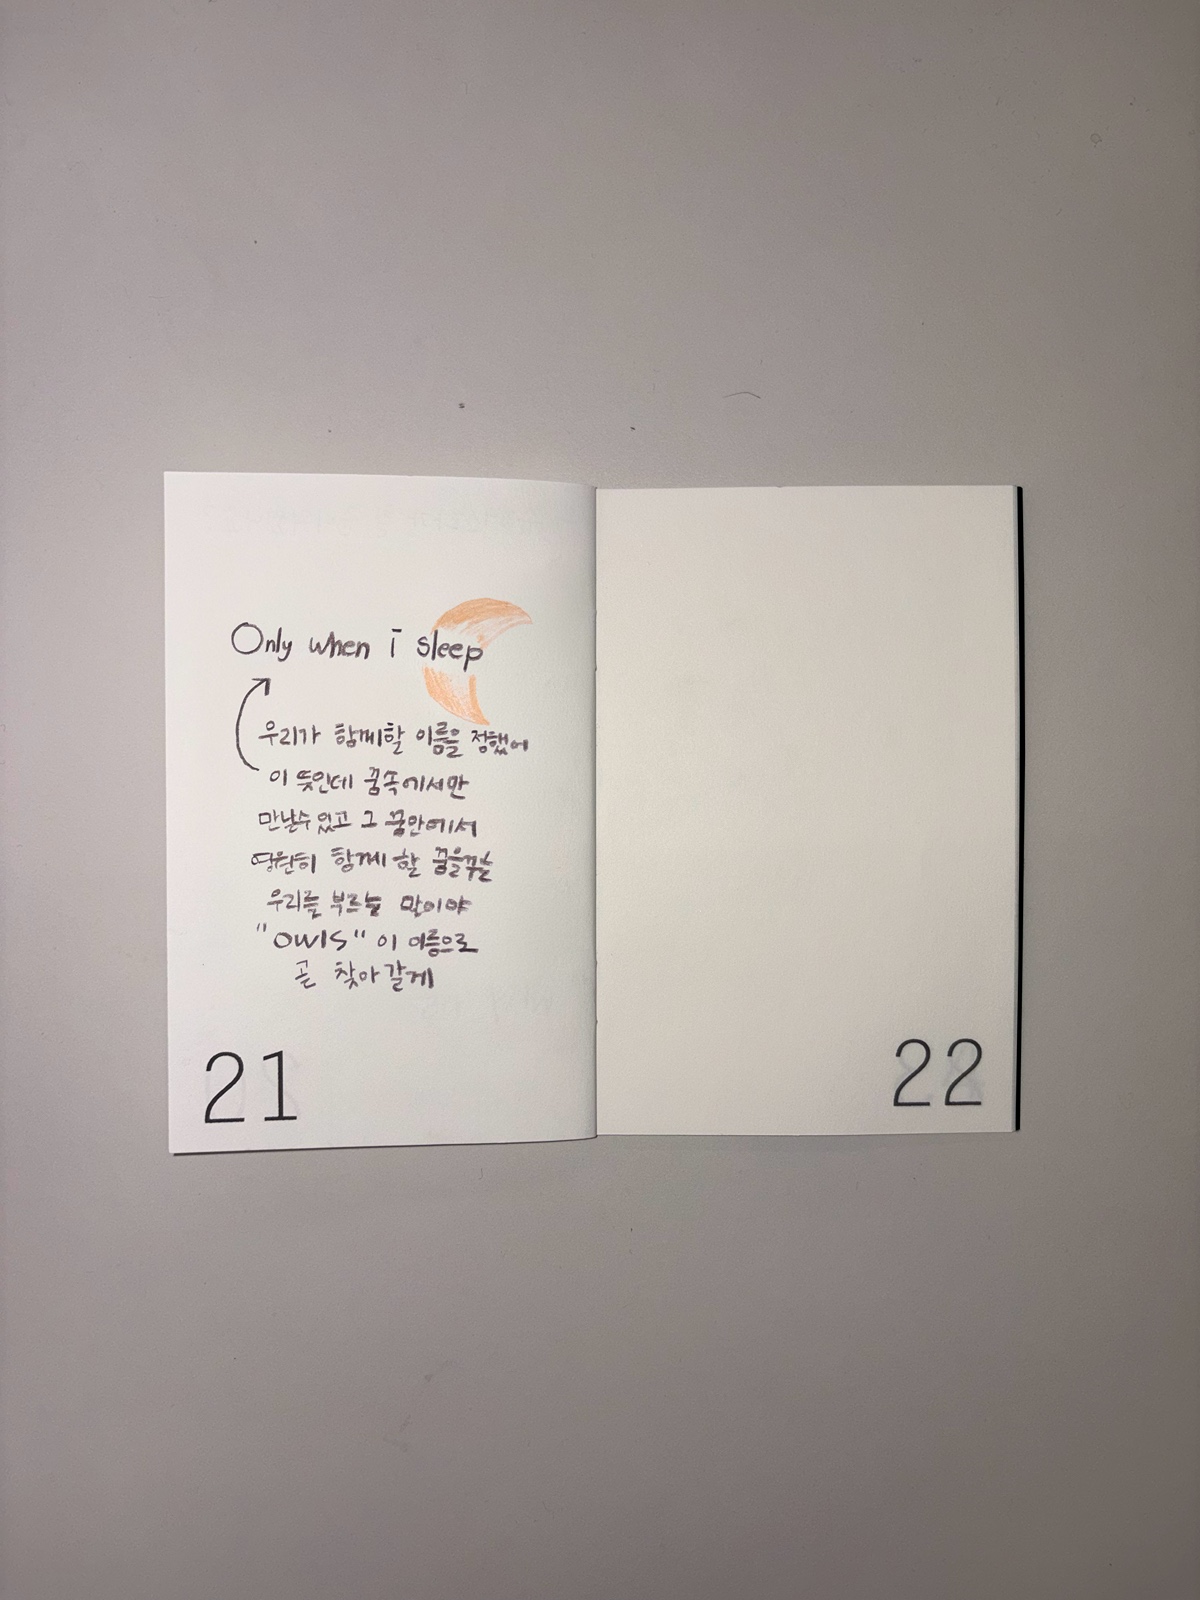 Only when i sleep
우리가 함께할 이름을 정했어
이 뜻인데 꿈속에서만
만날수있고 그 꿈안에서
영원히 함께 할 꿈을꾸는
우리를 부르는 말이야
"OWIS" 이 이름으로
곧 찾아갈게
21
22